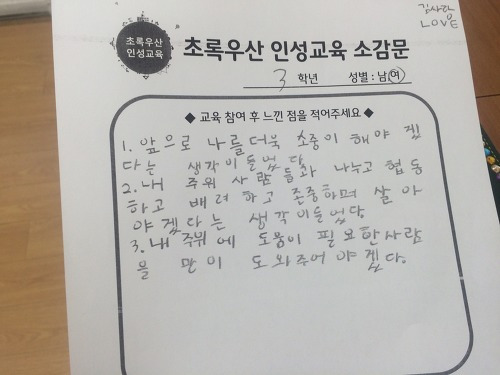 김사랑
LOVE
초록우산
인성교육
초록우산 인성교육 소감문
3 학년 성별 : 남(여)
◆ 교육 참여 후 느낀 점을 적어주세요 ◆
1. 앞으로 나를더욱 소중이 해야 겠
다는 생각이들었다.
2. 내 주위 사람들과 나누고 협동
하고 배려 하고 존중하며 살아
야겠다는 생각이들었다
3. 내 주위에 도움이 필요한사람
을 만이 도와주어야겠다.